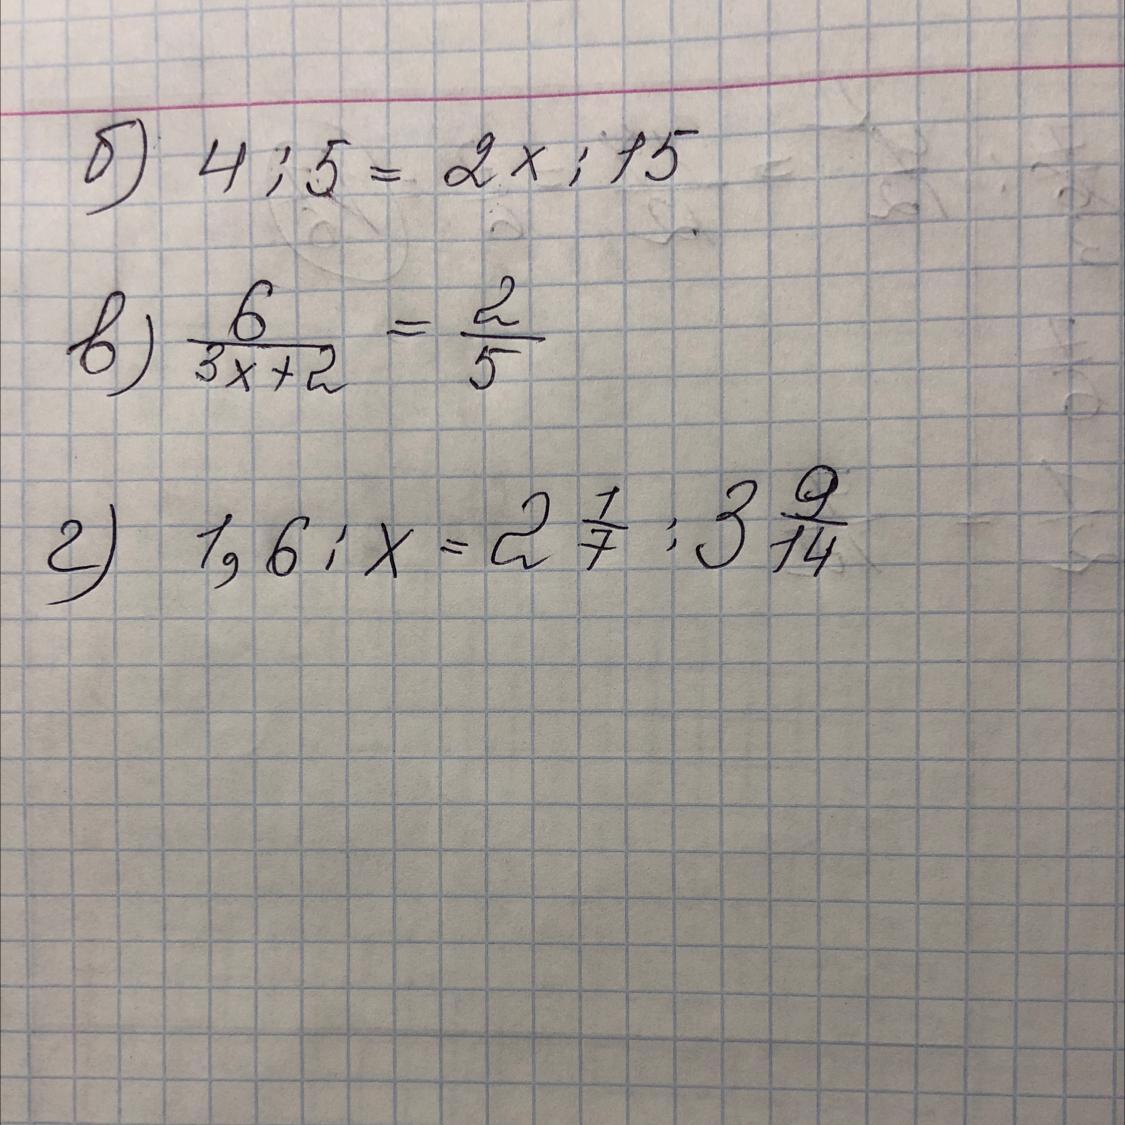 б) 4 : 5 = 2x : 15
в) 6/(3x+2) = 2/5
г) 1,6 : x = 2 1/7 : 3 9/14